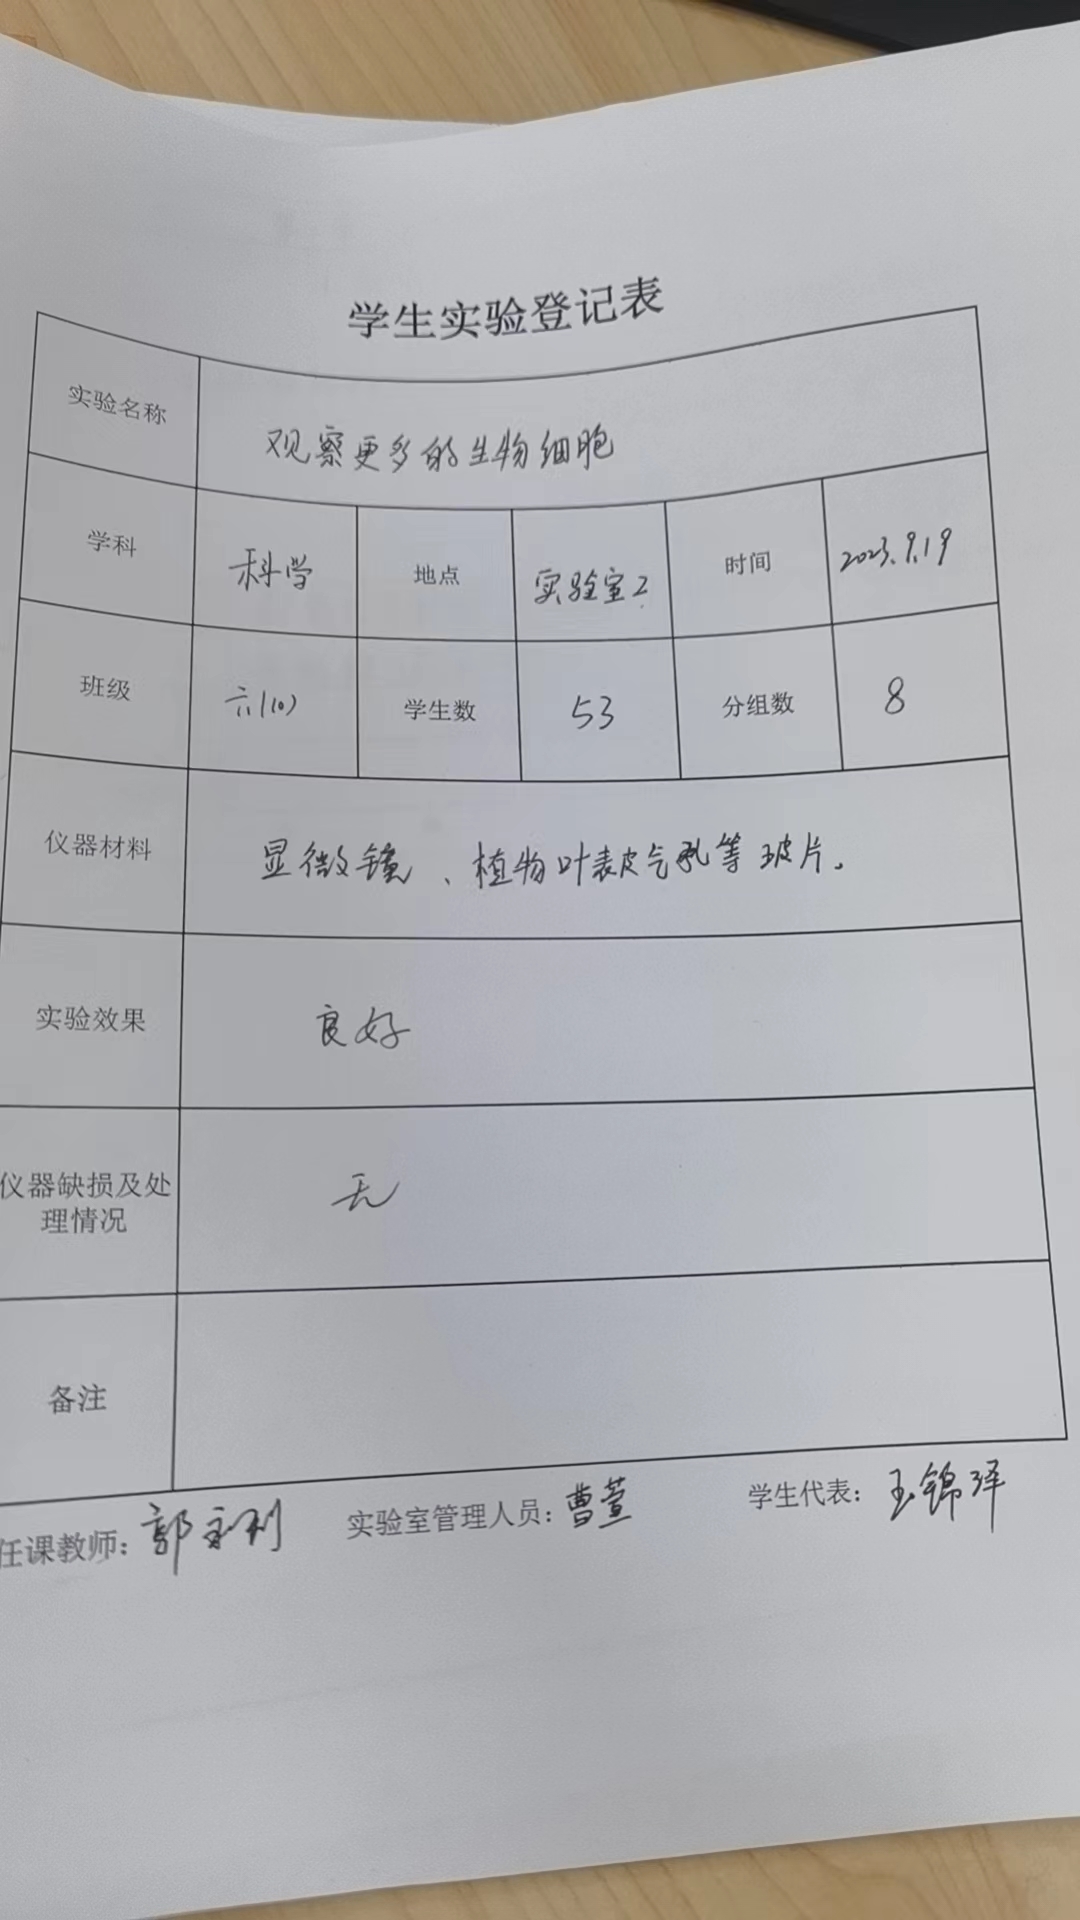 学生实验登记表
实验名称 观察更多的生物细胞
学科 科学 地点 实验室2 时间 2023.9.19
班级 六(10) 学生数 53 分组数 8
仪器材料 显微镜、植物叶表皮气孔等玻片。
实验效果 良好
仪器缺损及处
理情况 无
备注
任课教师: 郭永利 实验室管理人员: 曹萱 学生代表: 王锦泽